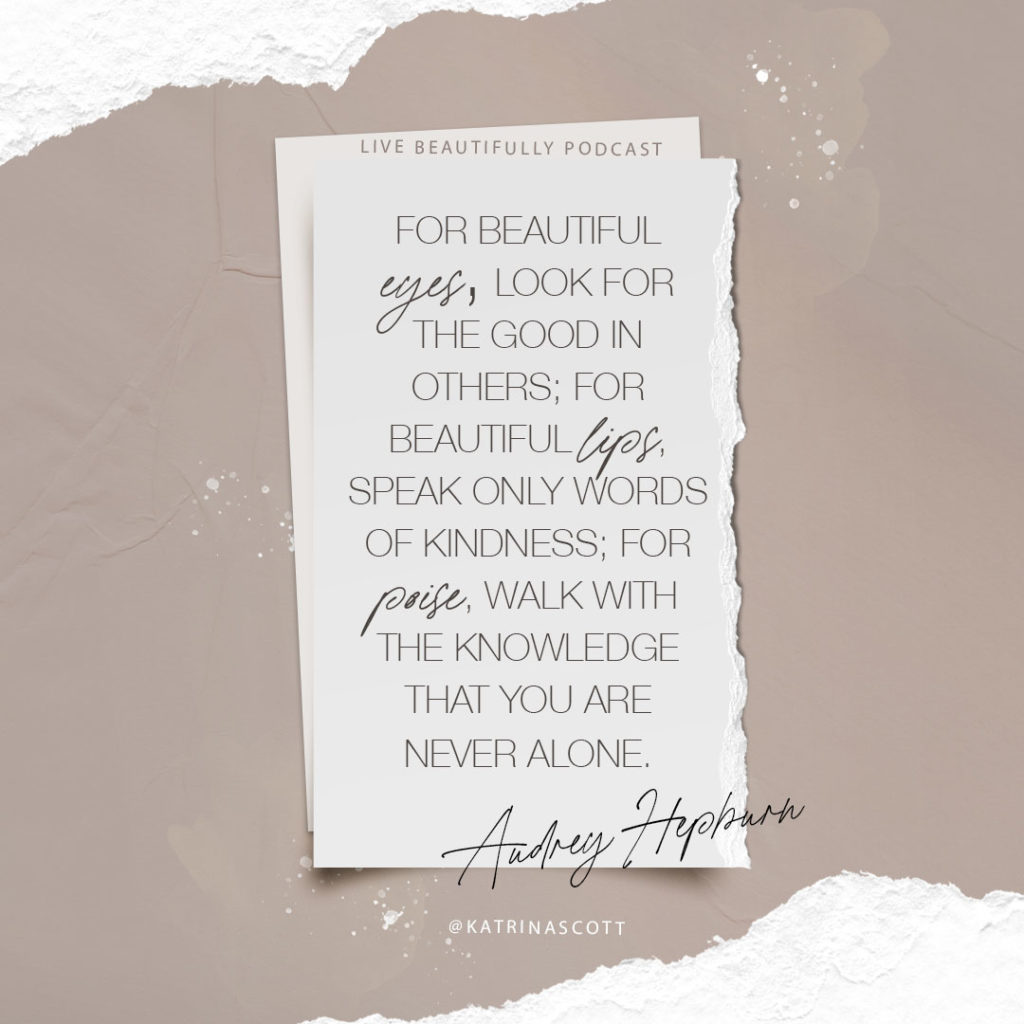 LIVE BEAUTIFULLY PODCAST
FOR BEAUTIFUL
eyes, LOOK FOR
THE GOOD IN
OTHERS; FOR
BEAUTIFUL lips,
SPEAK ONLY WORDS
OF KINDNESS; FOR
poise, WALK WITH
THE KNOWLEDGE
THAT YOU ARE
NEVER ALONE.
Audrey Hepburn
@KATRINASCOTT